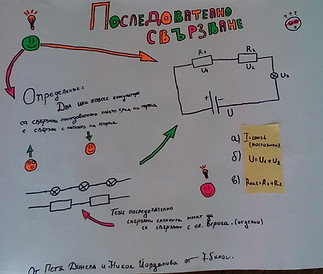 ПОСЛЕДОВАТЕЛНО
СВЪРЗВАНЕ
R₁
R₂
U₁
U₂
U₃
U
Определение:
Два или повече консуматора
са свързани последователно, когато краят на първия
е свързан с началото на втория.
а) I=const
(постоянен)
б) U=U₁+U₂
в) Rекв=R₁+R₂
Тези последователно
свързани елементи могат да
се свързват с ел. верига.
От Петя Динева и Никол Йорданова от 7.